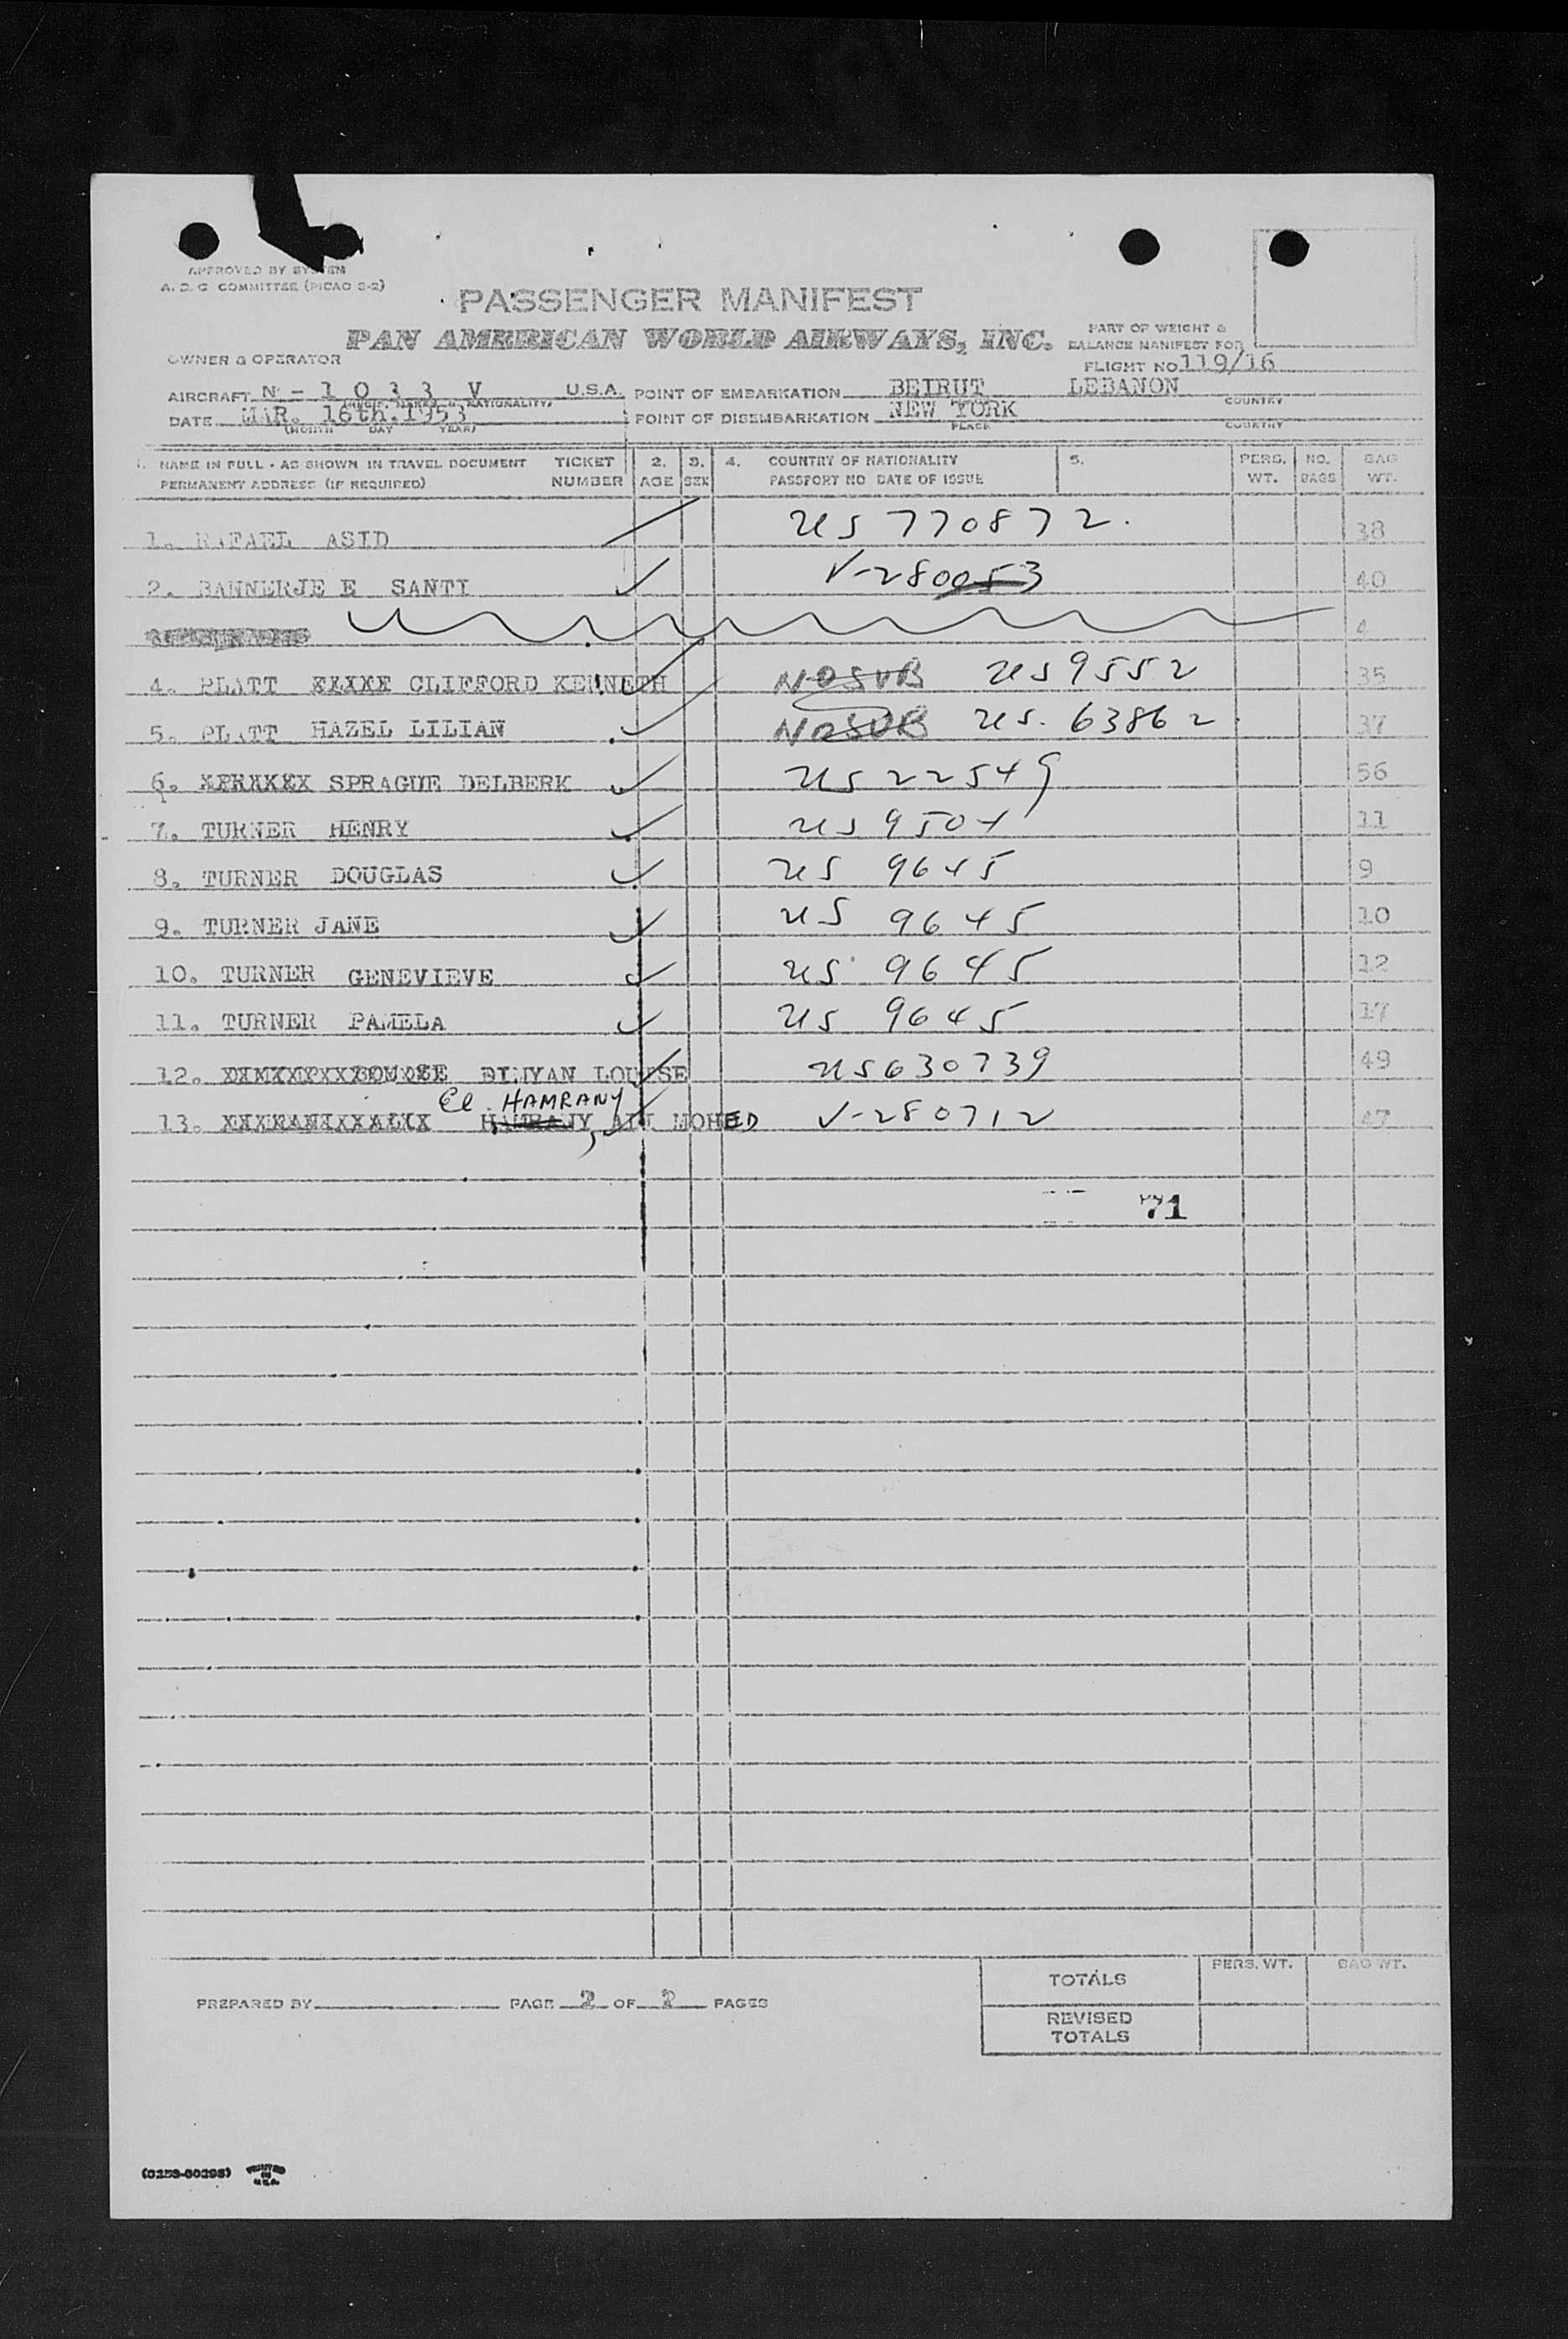 APPROVED BY SYSTEM
A. D. C COMMITTEE (PICAO S-2)
PASSENGER MANIFEST
PAN AMERICAN WORLD AIRWAYS, INC.
PART OF WEIGHT &
BALANCE MANIFEST FOR
OWNER & OPERATOR
FLIGHT NO. 119/16
AIRCRAFT N - 1 0 3 3 V U.S.A. POINT OF EMBARKATION BEIRUT LEBANON
NATIONALITY) COUNTRY
DATE MAR. 16th.1953 POINT OF DISEMBARKATION NEW YORK
(MONTH DAY YEAR) PLACE COUNTRY
1. NAME IN FULL - AS SHOWN IN TRAVEL DOCUMENT TICKET 2. 3. 4. COUNTRY OF NATIONALITY 5. PERS. NO. BAG
PERMANENT ADDRESS (IF REQUIRED) NUMBER AGE SEX PASSPORT NO DATE OF ISSUE WT. BAGS WT.
1. RAFAEL ASID US 770872. 38
2. BANNERJE E SANTI V-280053 40
4
4. PLATT CLIFFORD KENNETH NOSUB US 9552 35
5. PLATT HAZEL LILIAN NOSUB US. 63862 37
6. SPRAGUE DELBERK US 22549 56
7. TURNER HENRY US 9504 11
8. TURNER DOUGLAS US 9645 9
9. TURNER JANE US 9645 10
10. TURNER GENEVIEVE US 9645 12
11. TURNER PAMELA US 9645 17
12. DIMYAN LOUISE US 630739 49
El HAMRANY
13. HAMRANY, ALI MOHED V-280712 47
71
PREPARED BY PAGE 2 OF 2 PAGES
TOTALS PERS. WT. BAG WT.
REVISED
TOTALS
PRINTED
IN
U.S.A.